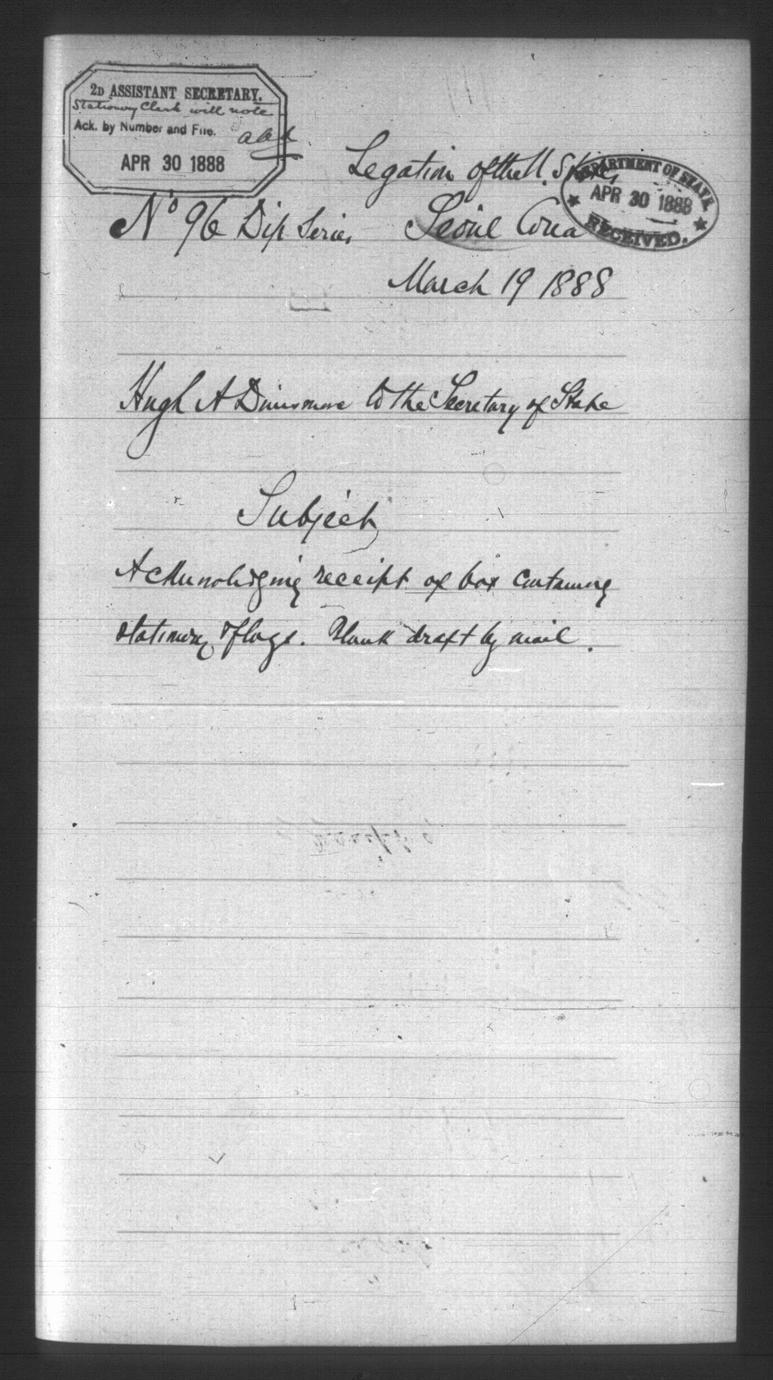 2D ASSISTANT SECRETARY.
Stationery Clerk will note
Ack. by Number and File.
APR 30 1888
DEPARTMENT OF STATE
APR 30 1888
RECEIVED.
Legation of the U. States
No 96 Dip Series Seoul Corea
March 19 1888
Hugh A Dinsmore to the Secretary of State
Subject
Acknowledging receipt of box containing
stationery & flags. Blank draft by mail.